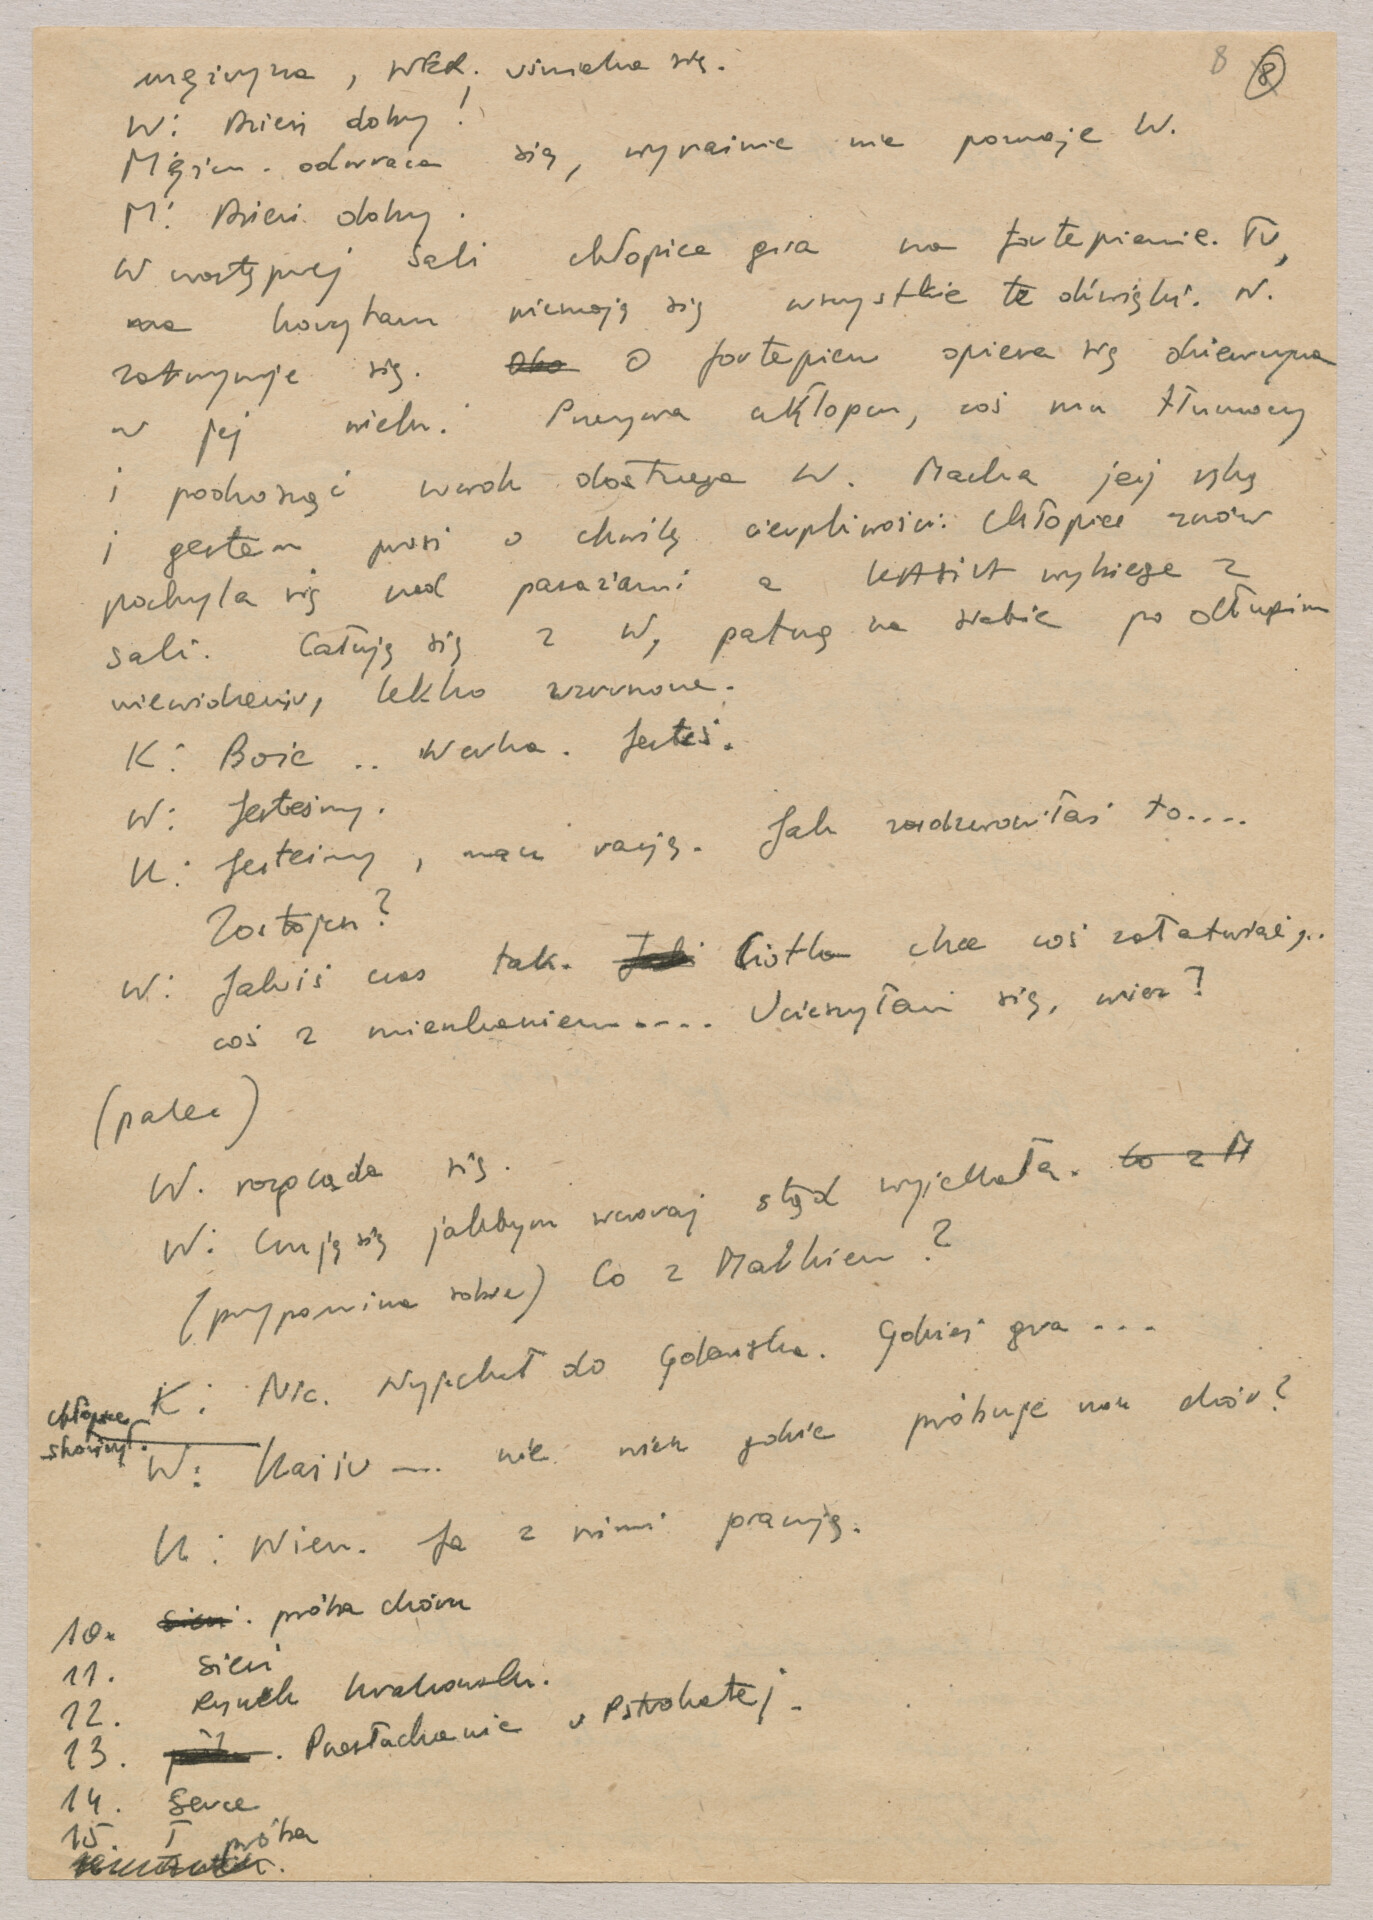 8 8
mężczyzna, W. uśmiecha się.
W: Dzień dobry!
Mężcz. odwraca się, wyraźnie nie poznaje W.
M: Dzień dobry.
W następnej sali chłopiec gra na fortepianie. Tu,
na korytarzu zlewają się wszystkie te dźwięki. W.
zatrzymuje się. Oko O fortepian opiera się dziewczyna
w jej wieku. Przerywa chłopcu, coś mu tłumaczy
i podnosząc wzrok dostrzega W. Macha jej ręką
i gestem prosi o chwilę cierpliwości. Chłopiec znów
pochyla się nad pasażami a KASIA wybiega z
sali. Całują się z W, patrzą na siebie po długim
niewidzeniu, lekko wzruszone.
K: Boże .. Werka. Jesteś.
W: Jesteśmy.
K: Jesteśmy, masz rację. Jak zadzwoniłaś to....
Zostajesz?
W: Jakiś czas tak. Ciotka chce coś załatwiać,..
coś z mieszkaniem.... Ucieszyłam się, wiesz?
(palec)
W. rozgląda się.
W: Czuję się jakbym wczoraj stąd wyjechała. Co z M
(przypomina sobie) Co z Maćkiem?
K: Nic. Wyjechał do Gdańska. Gdzieś gra ...
chłopiec
skończył.
W: Kasiu .... nie wiesz gdzie próbuje nasz chór?
K: Wiem. Ja z nimi pracuję.
10. sień. próba chóru
11. sień
12. Rynek krakowski.
13. Przesłuchanie u Pstrokatej.
14. Serce
15. I próba